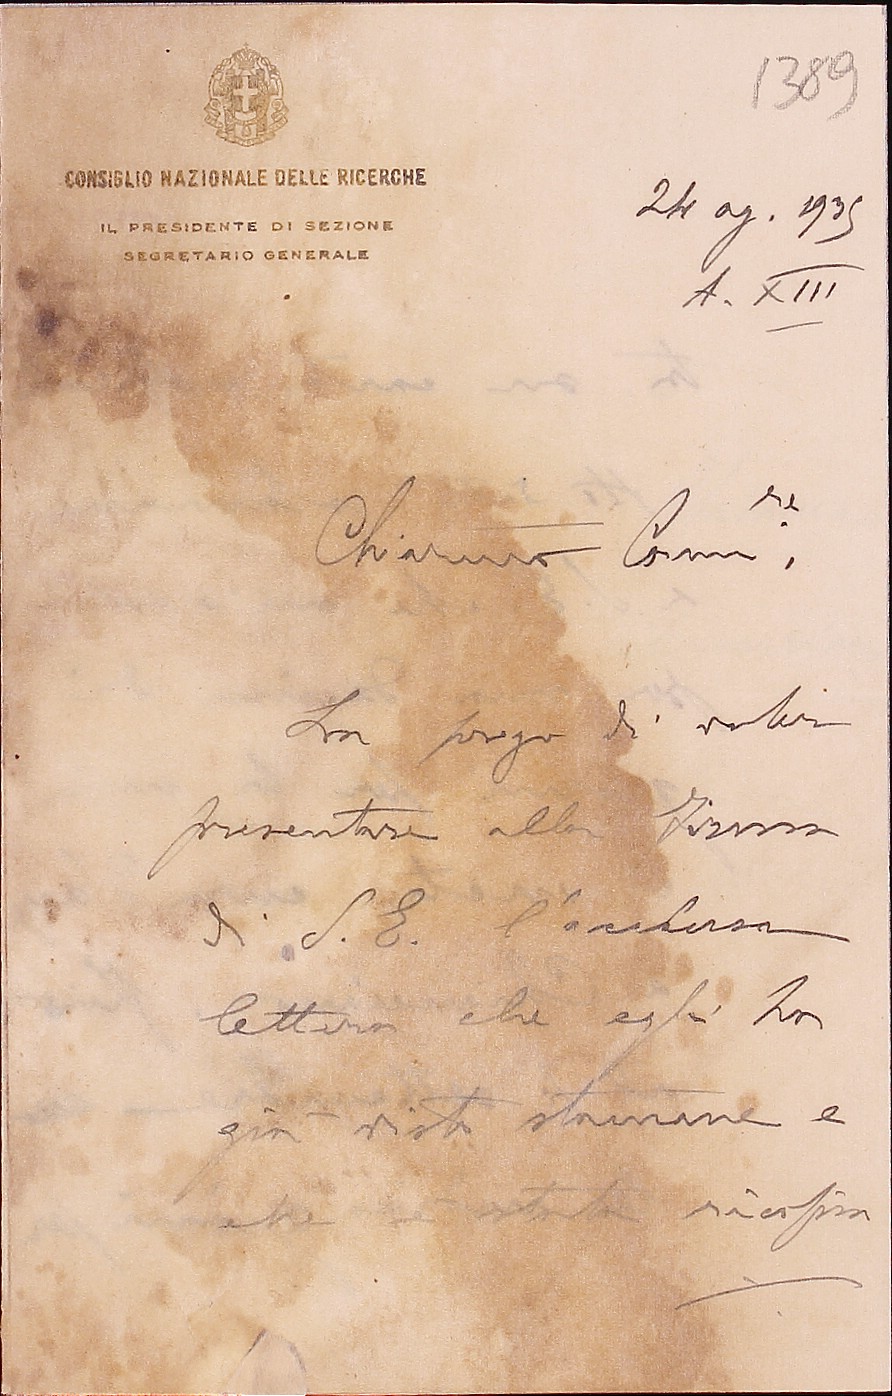 1389
CONSIGLIO NAZIONALE DELLE RICERCHE
IL PRESIDENTE DI SEZIONE
SEGRETARIO GENERALE
24 ag. 1935
A. XIII
Chiar.mo Comm.re,
La prego di voler
presentare alla Firma
di S. E. l'acclusa
lettera che egli ha
già vista stamane e
che è stata ricopia